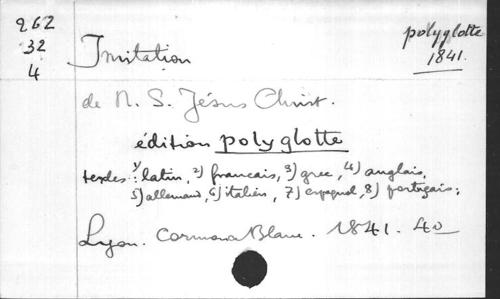 262
32
4
polyglotte
1841.
Imitation
de N. S. Jésus Christ.
édition polyglotte
textes : 1) latin, 2) francais, 3) grec, 4) anglais,
5) allemand, 6) italien, 7) espagnol, 8) portugais;
Lyon. Cormon & Blanc. 1841. 4o